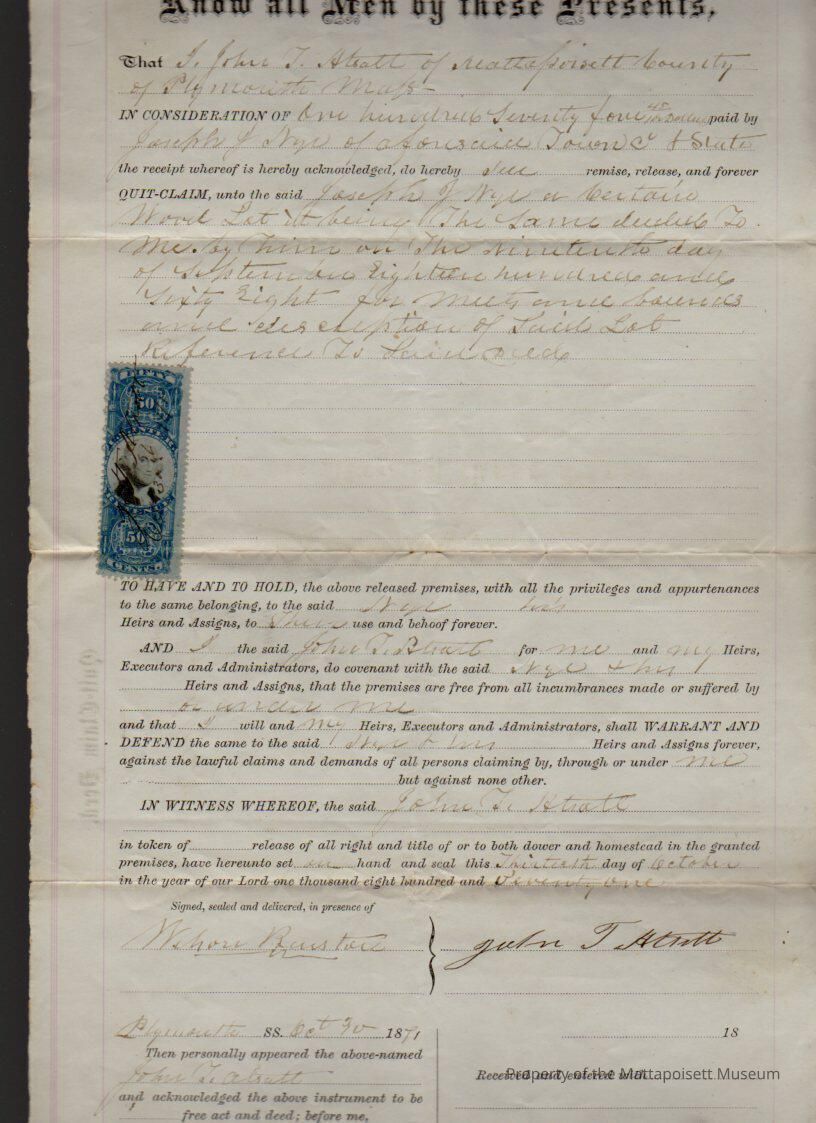 Know all Men by these Presents,
That I, John T. Atsatt of Mattapoisett County
of Plymouth Mass
IN CONSIDERATION OF One hundred Seventy four paid by
Joseph J Nye of aforesaid Town Co & State
the receipt whereof is hereby acknowledged, do hereby remise, release, and forever
QUIT-CLAIM, unto the said Joseph J Nye a Certain
Wood Lot it being The Same deeded To
me by him on The Ninteenth day
of September Eighteen hundred and
Sixty Eight for meets and bounds
and description of Said Lot
Reference To Said deed
FIFTY
50
50
CENTS
TO HAVE AND TO HOLD, the above released premises, with all the privileges and appurtenances
to the same belonging, to the said Nye his
Heirs and Assigns, to Their use and behoof forever.
AND I the said John T. Atsatt for me and my Heirs,
Executors and Administrators, do covenant with the said Nye & his
Heirs and Assigns, that the premises are free from all incumbrances made or suffered by
or under me
and that I will and my Heirs, Executors and Administrators, shall WARRANT AND
DEFEND the same to the said Nye & his Heirs and Assigns forever,
against the lawful claims and demands of all persons claiming by, through or under me
but against none other.
IN WITNESS WHEREOF, the said John T. Atsatt
in token of release of all right and title of or to both dower and homestead in the granted
premises, have hereunto set hand and seal this Thirtieth day of October
in the year of our Lord one thousand eight hundred and Seventy one
Signed, sealed and delivered, in presence of
John T Atsatt
Plymouth SS. Oct 30 1871
18
Then personally appeared the above-named
John T. Atsatt
Received and entered with
Property of the Mattapoisett Museum
and acknowledged the above instrument to be
free act and deed; before me,